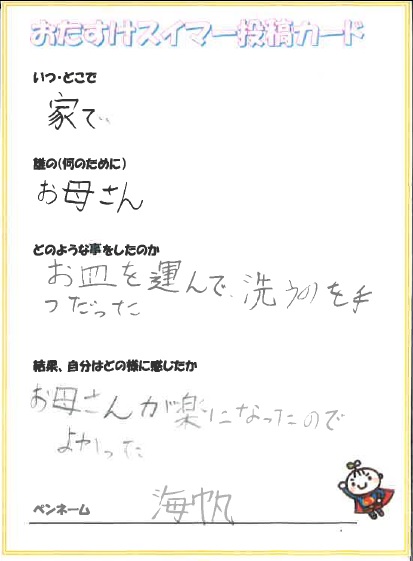 おたすけスイマー投稿カード
いつ・どこで
家で
誰の(何のために)
お母さん
どのような事をしたのか
お皿を運んで、洗うのを手
つだった
結果、自分はどの様に感じたか
お母さんが楽になったので
よかった
ペンネーム
海帆